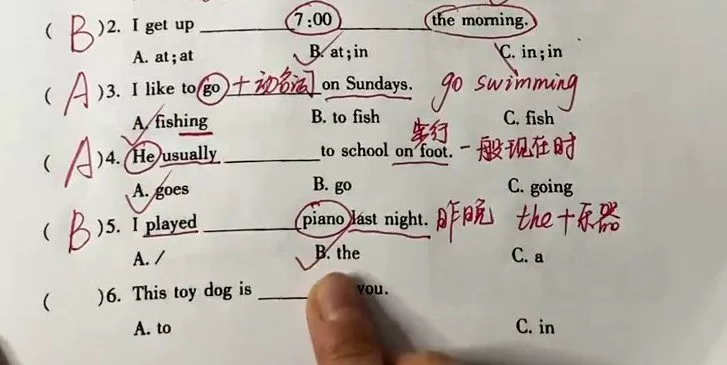 ( B )2. I get up ______ 7:00 ______ the morning.
A. at;at B. at;in C. in;in
( A )3. I like to go +动名词 on Sundays. go swimming
A. fishing B. to fish C. fish
步行
( A )4. He usually ______ to school on foot. 一般现在时
A. goes B. go C. going
( B )5. I played ______ piano last night. 昨晚 the+乐器
A. / B. the C. a
( )6. This toy dog is ______ you.
A. to C. in